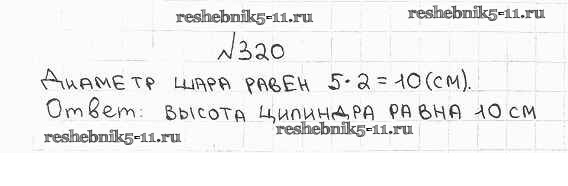 reshebnik5-11.ru reshebnik5-11.ru
№320
Диаметр шара равен 5·2=10(см).
Ответ: высота цилиндра равна 10 см
reshebnik5-11.ru reshebnik5-11.ru